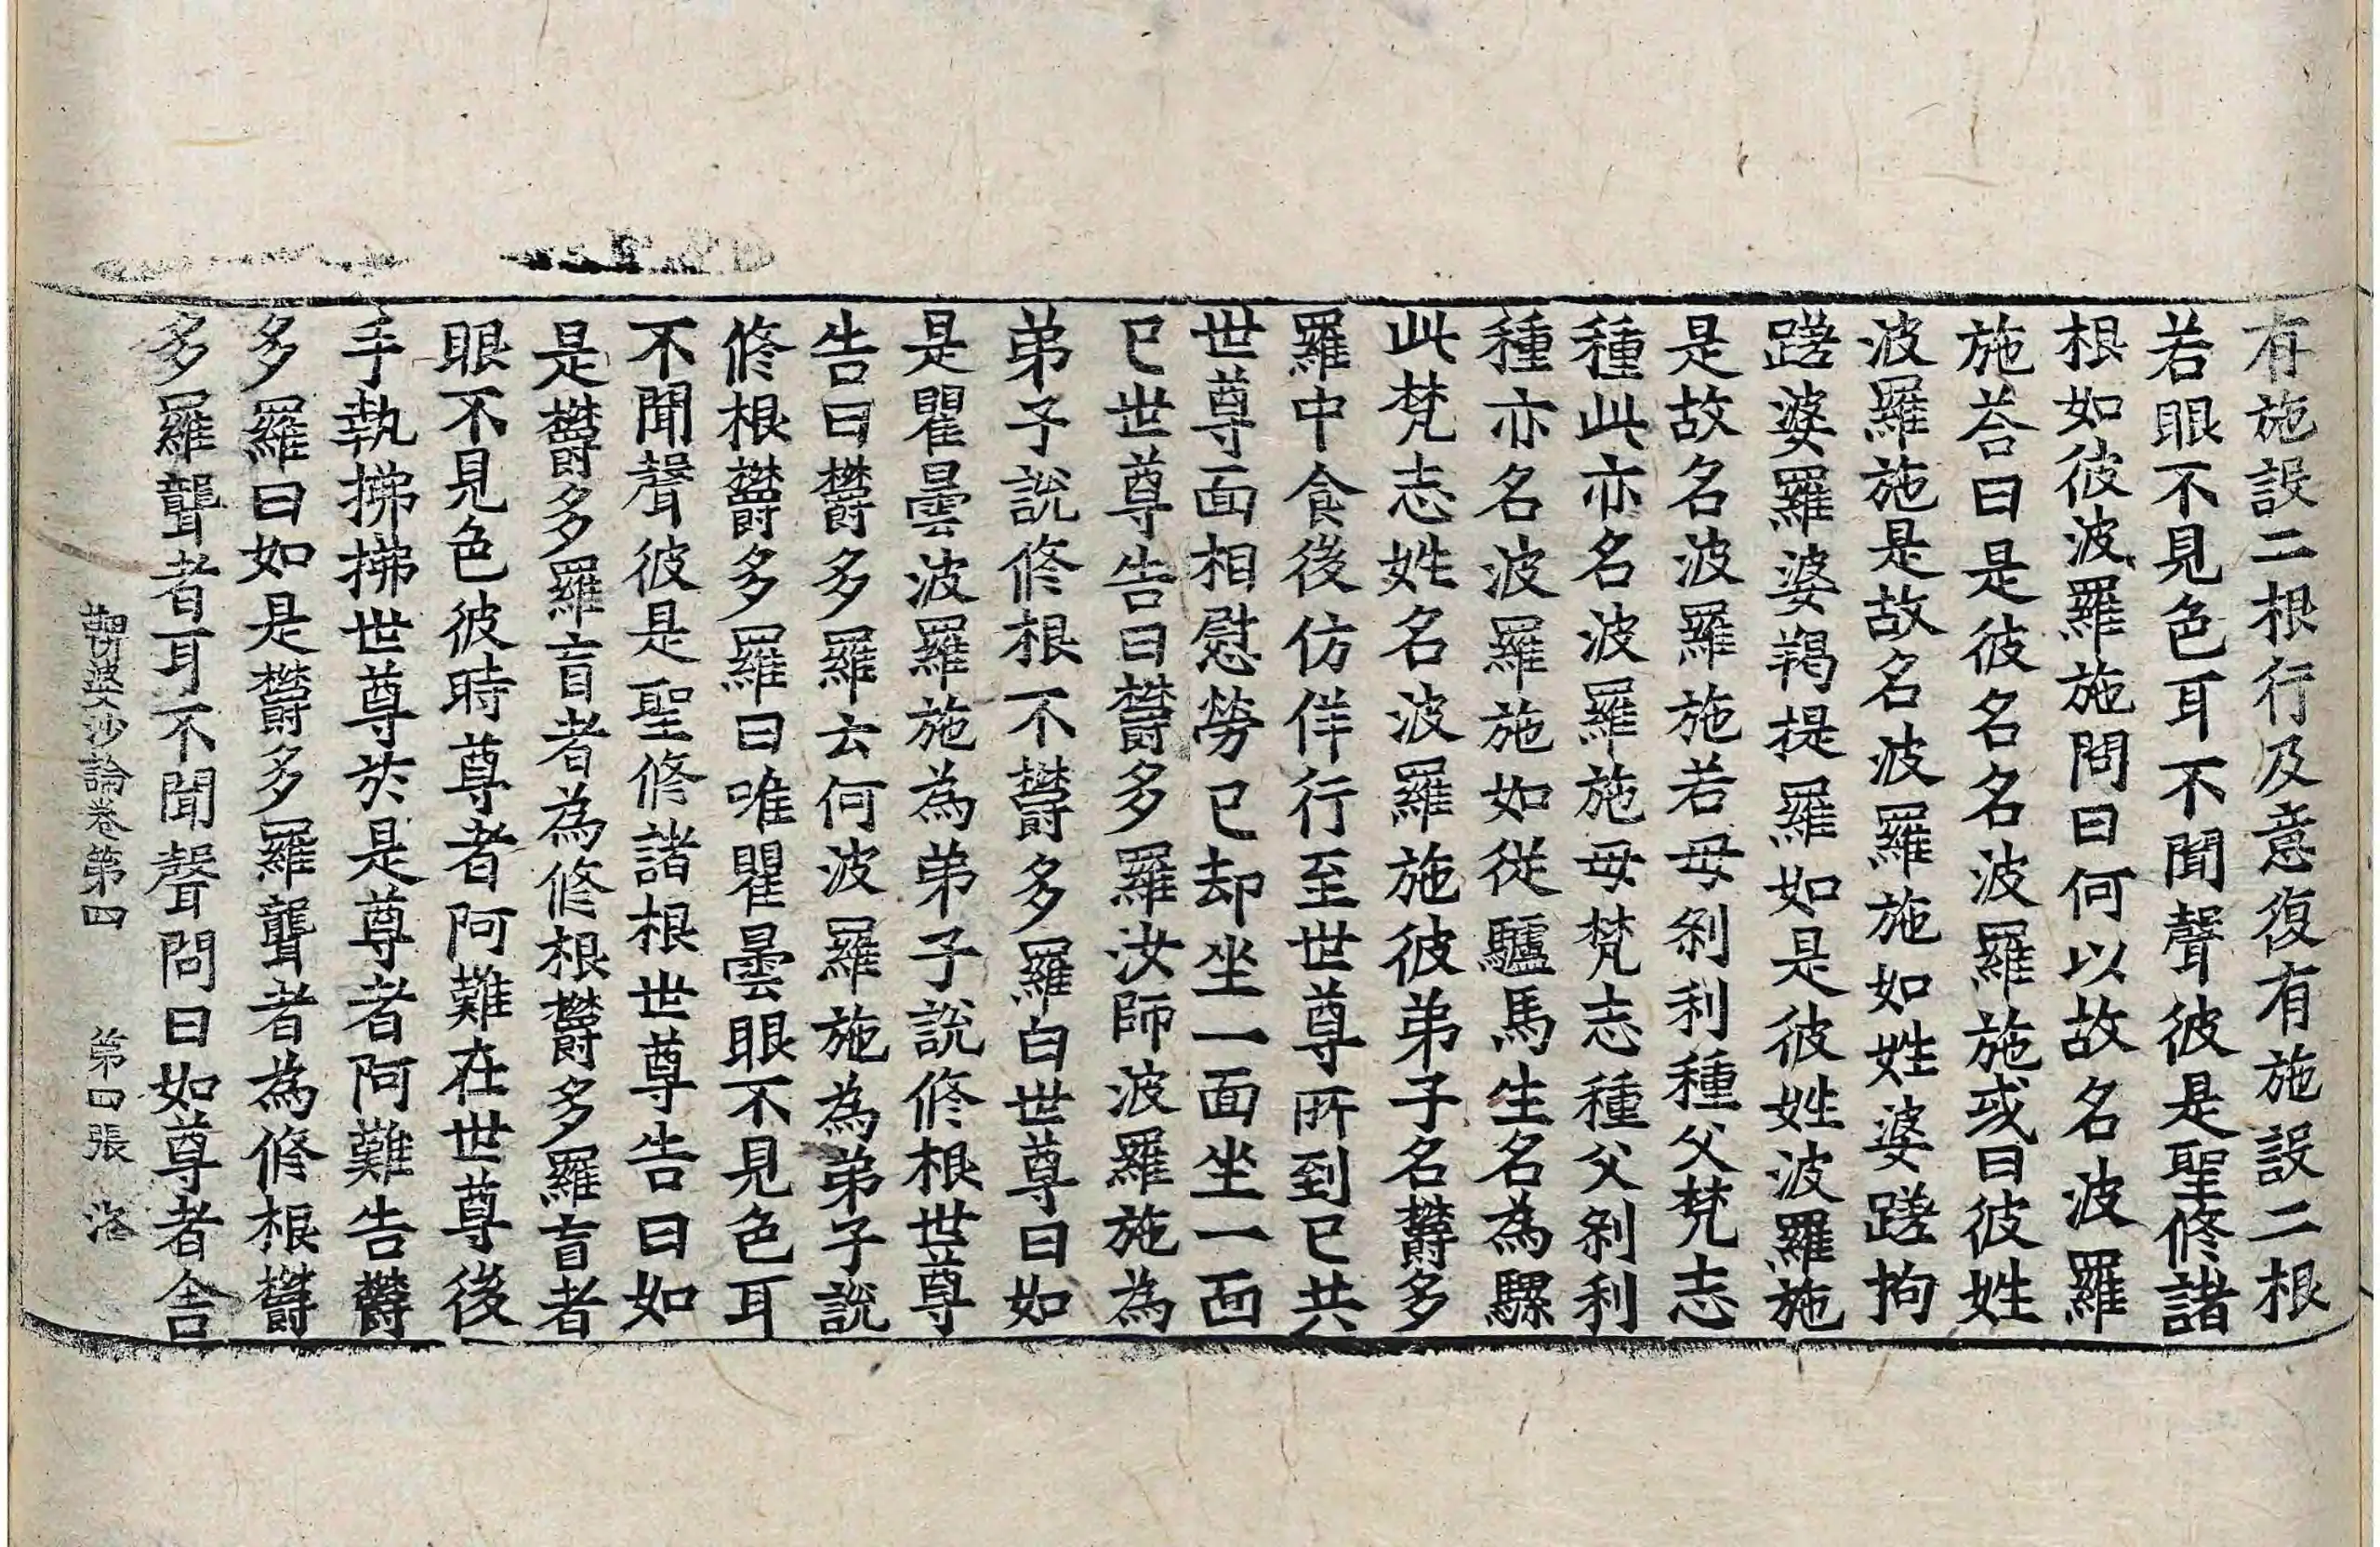 有施設二根行及意復有施設二根
若眼不見色耳不聞聲彼是聖修諸
根如彼波羅施問曰何以故名波羅
施荅曰是彼名名波羅施或曰彼姓
波羅施是故名波羅施如姓婆蹉拘
蹉婆羅婆羯提羅如是彼姓波羅施
是故名波羅施若母刹利種父梵志
種此亦名波羅施母梵志種父刹利
種亦名波羅施如從驢馬生名為騾
此梵志姓名波羅施彼弟子名欝多
羅中食後仿佯行至世尊所到已共
世尊面相慰勞已却坐一面坐一面
已世尊告曰欝多羅汝師波羅施為
弟子說修根不欝多羅白世尊曰如
是瞿曇波羅施為弟子說修根世尊
告曰欝多羅云何波羅施為弟子說
修根欝多羅曰唯瞿曇眼不見色耳
不聞聲彼是聖修諸根世尊告曰如
是欝多羅盲者為修根欝多羅盲者
眼不見色彼時尊者阿難在世尊後
手執拂拂世尊於是尊者阿難告欝
多羅曰如是欝多羅聾者為修根欝
多羅聾者耳不聞聲問曰如尊者舍
鞞婆沙論卷第四 第四張 洛